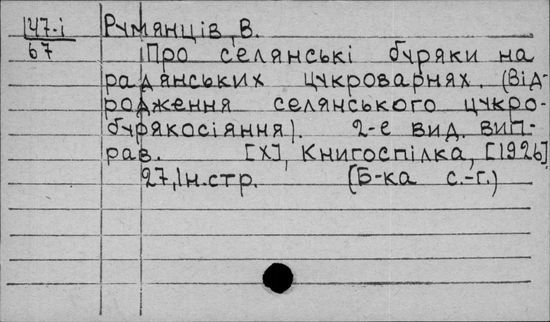 147-і Румянців, В.
67 Про селянські буряки на
радянських цукроварнях. (Від-
родження селянського цукро-
бурякосіяння). 2-е вид. вип-
рав. [Х], Книгоспілка, [1926]
27,1н.стр. (Б-ка с.-г.)